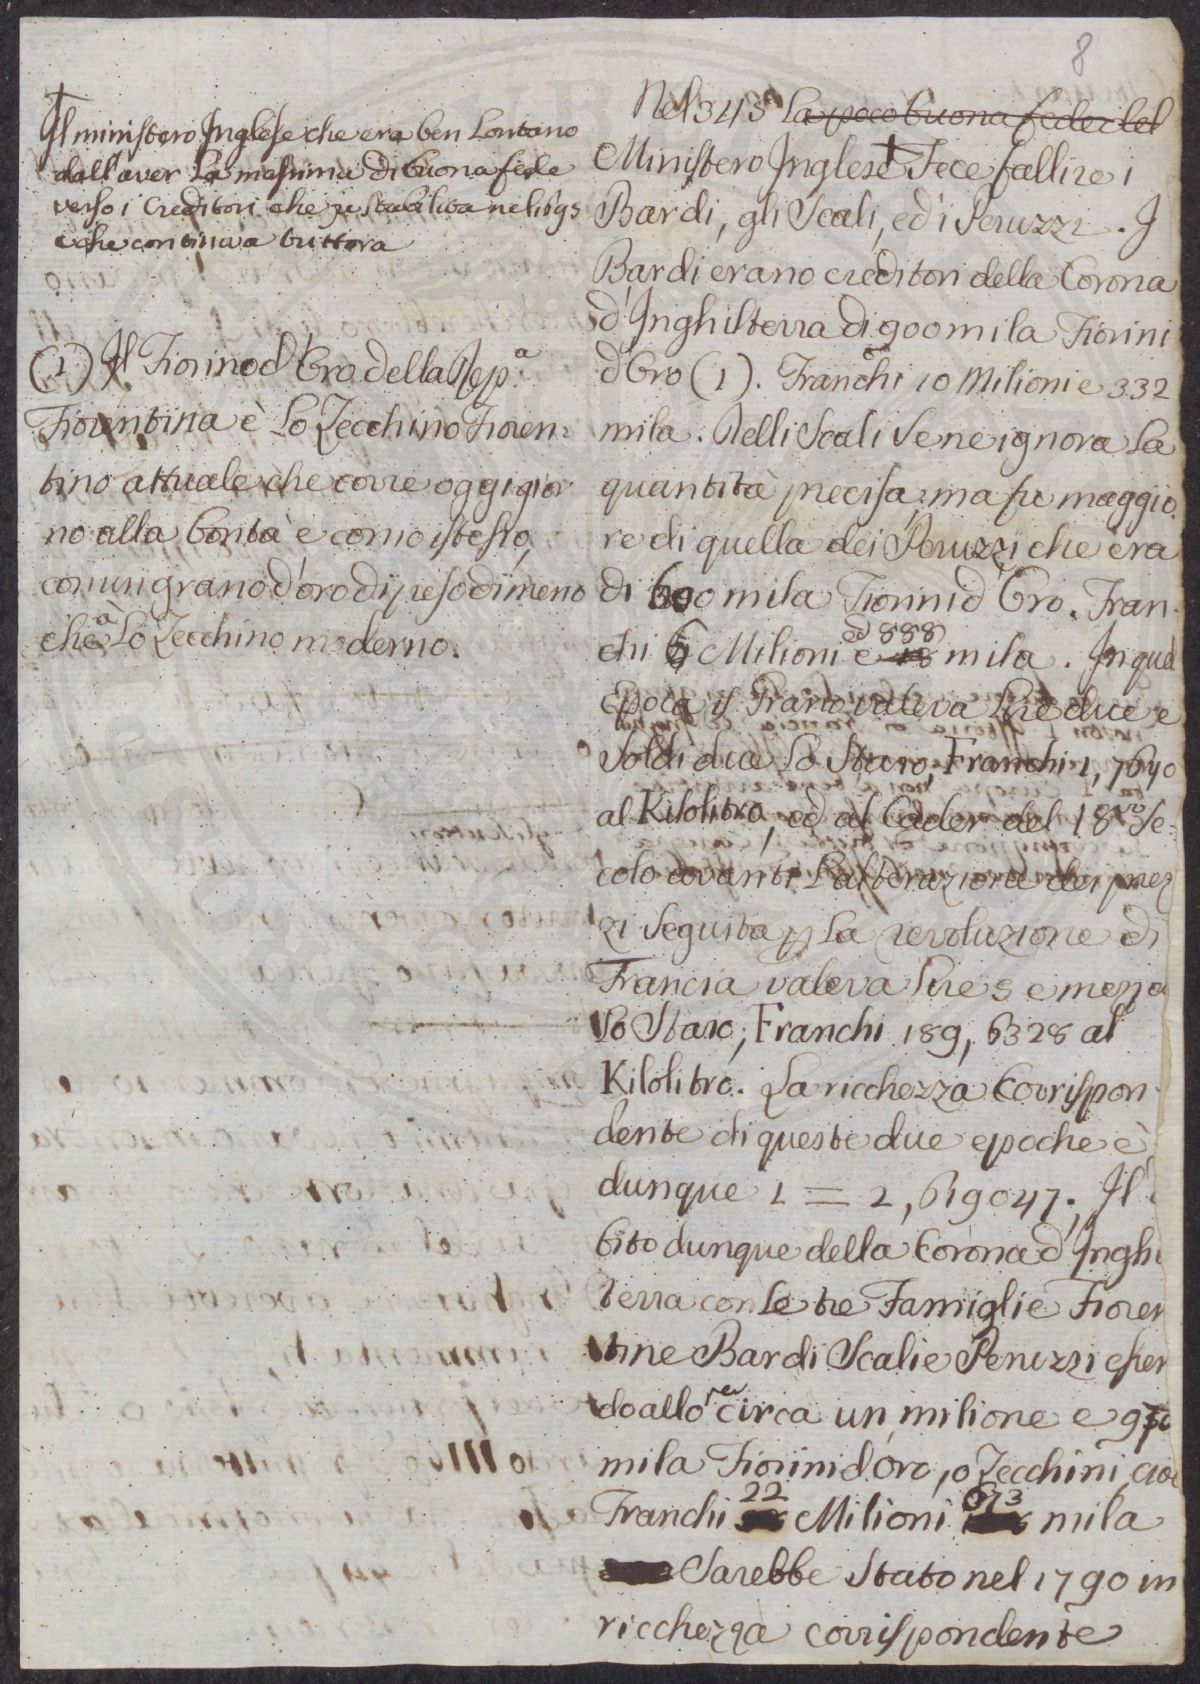 8
†
Il ministero Inglese che era ben Lontano
dall'aver La massima di buona fede
verso i Creditori che stabiliva nel 1695
e che continua tuttora
(1) Il Fiorino d'Oro della Rep.a
Fiorentina è Lo Zecchino Fioren=
tino attuale che corre oggigior
no alla bontà e conio istesso,
con un grano d'oro di peso di meno
che à Lo Zecchino moderno.
Nel 1345 La poco buona fede del
Ministero Inglese † Fece fallire i
Bardi, gli Scali, ed i Peruzzi. I
Bardi erano creditori della Corona
d'Inghilterra di 900 mila Fiorini
d'Oro (1). Franchi 10 Milioni e 332
mila. Delli Scali se ne ignora La
quantità precisa, ma fu maggio
re di quella dei Peruzzi che era
di 600 mila Fiorini d'Oro. Fran
chi 6 Milioni ed 888 mila. In quel
Epoca il Grano valeva Lire due e
Soldi due Lo Staro, Franchi 1,7640
al Kilolitro, ed al Cader del 18vo Se=
colo avanti L'alterazione dei prez
zi seguita p La revoluzione di
Francia valeva Lire 5 e mezza
Lo Staro; Franchi 189,6328 al
Kilolitro. La ricchezza Corrispon
dente di queste due epoche è
dunque 1 = 2,619047. Il
bito dunque della Corona d'Inghi
lterra con Le tre Famiglie Fioren
tine Bardi Scali e Peruzzi essen
do allora circa un milione e 975
mila Fiorini d'oro, o Zecchini, cioè
Franchi 22 Milioni 673 mila
Sarebbe Stato nel 1790 in
ricchezza corrispondente